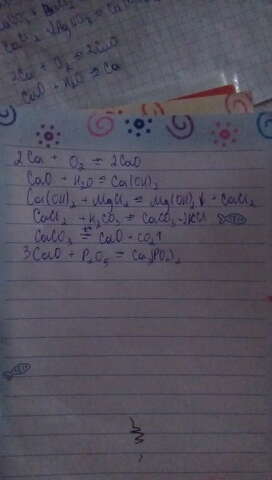 2Ca + O₂ = 2CaO
CaO + H₂O = Ca
2Ca + O₂ = 2CaO
CaO + H₂O = Ca(OH)₂
Ca(OH)₂ + MgCl₂ = Mg(OH)₂↓ + CaCl₂
CaCl₂ + K₂CO₃ = CaCO₃ + 2KCl
CaCO₃ = CaO + CO₂↑
3CaO + P₂O₅ = Ca₃(PO₄)₂